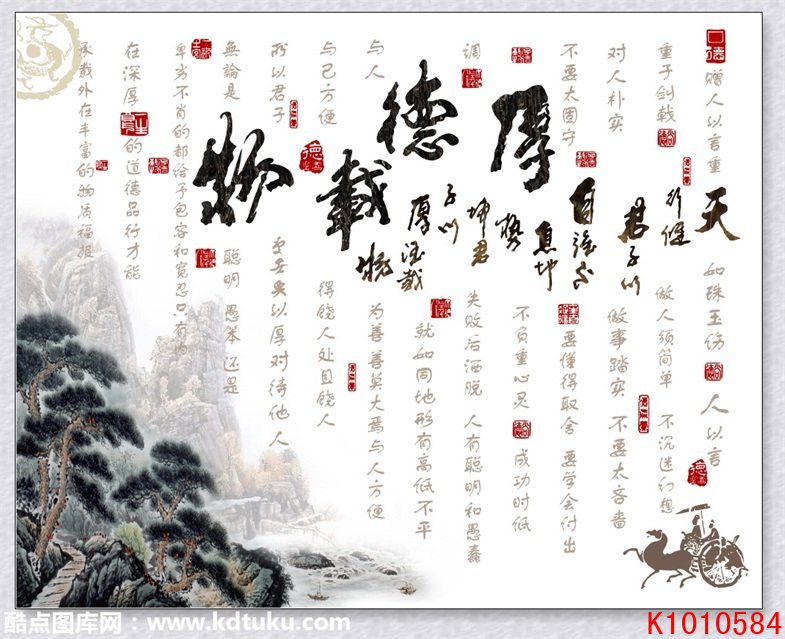 厚德載物
天行健
君子以
自强不
息坤
勢
坤君
子以
厚德載
物
赠人以言重
如珠玉伤
人以言
重于剑戟
做人须简单
不沉迷幻想
对人朴实
做事踏实
不要太吝啬
不要太固守
要懂得取舍
要学会付出
不负重心灵
成功时低
调
失败后洒脱
人有聪明和愚蠢
就如同地形有高低不平
与人
为善善莫大焉与人方便
与己方便
得饶人处且饶人
所以君子
要以厚对待他人
無論是
聪明
愚笨还是
卑劣不肖的都给予包容和宽忍只有内
在深厚
的道德品行才能
承载外在丰富的物质福报
酷点图库网：www.kdtuku.com
K1010584